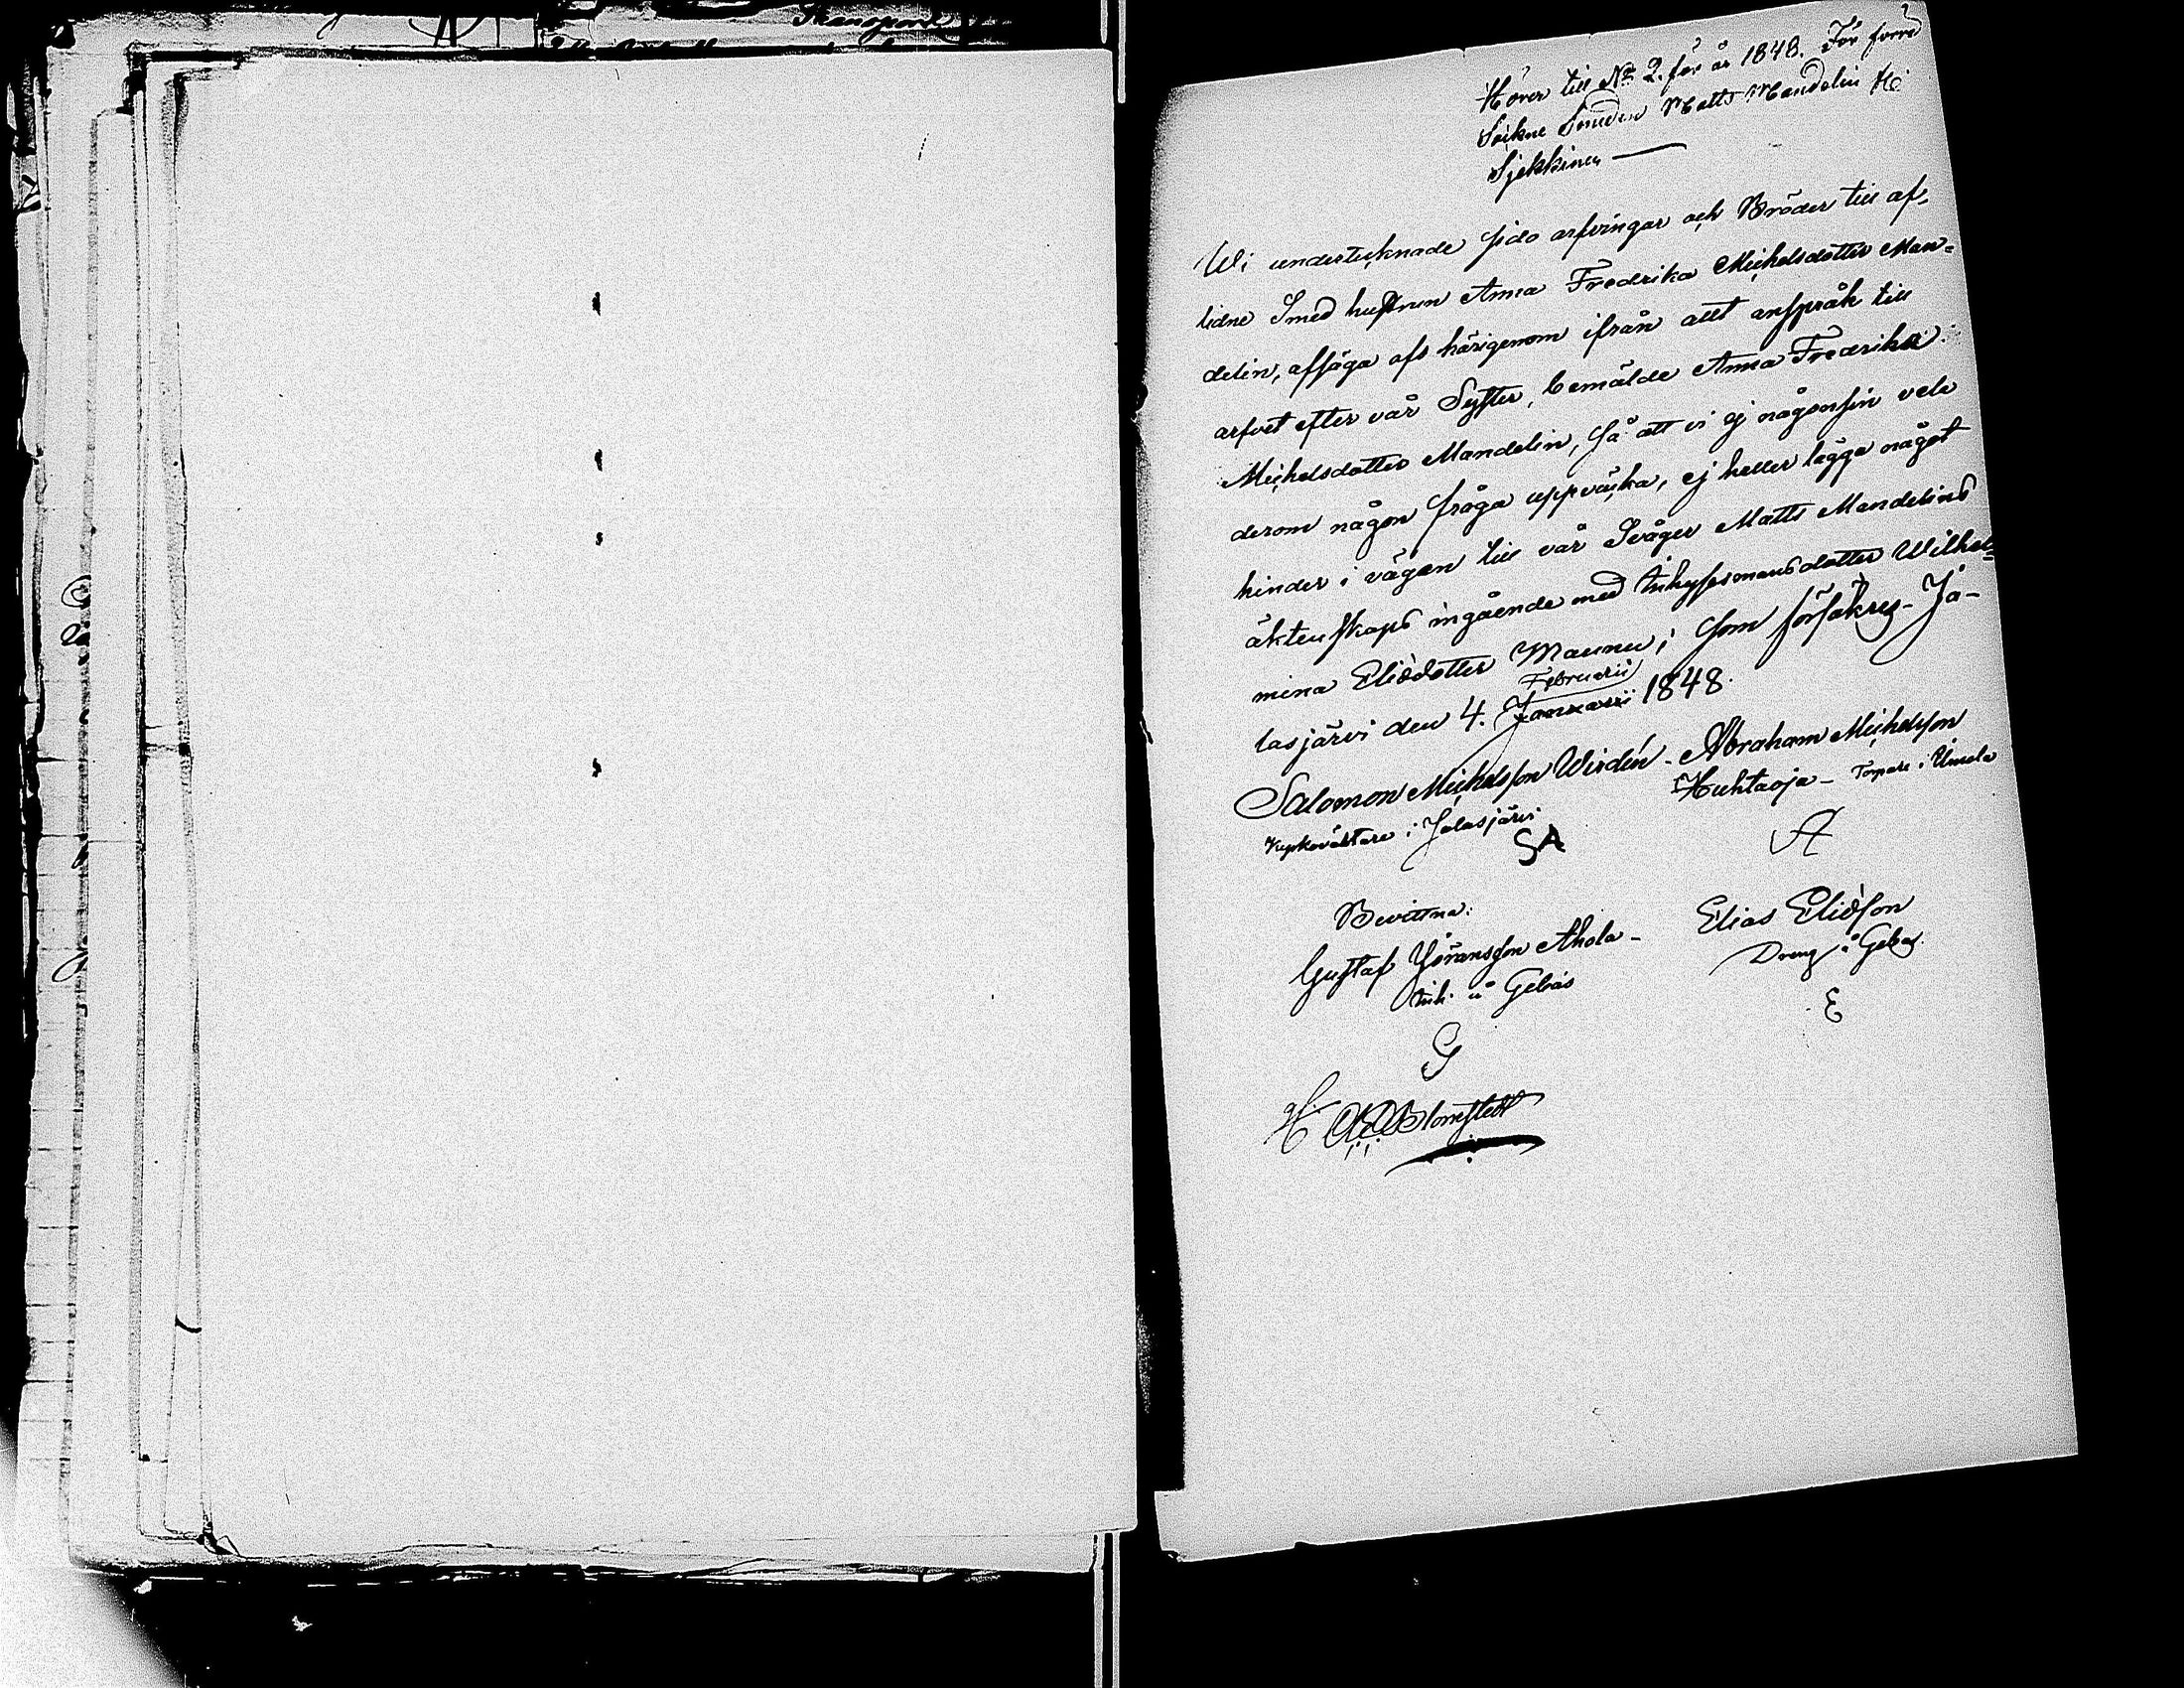 Transport
Hörer till No 2. för år 1848. För förra
Sockne Smeden Matts Mandelin
Sjekkinen —
Wi undertecknade sido arfvingar och Bröder till af-
lidne Smed hustrun Anna Fredrika Michelsdotter Man=
delin, afsäga oss härigenom ifrån allt anspråk till
arfvet efter vår Syster, bemälde Anna Fredrika
Michelsdotter Mandelin, så att vi ej någonsin vele
derom någon fråga uppväcka, ej heller lägga något
hinder i vägen till vår Svåger Matts Mandelins
äktenskaps ingående med Inhysesmansdotter Wilhel=
mina Eliædotter Maunu; som försäkres – Ja-
Februarii
lasjärvi den 4. Januarii 1848.
Salomon Michelsson Wirdén – Abraham Michelsson
Kyrkoväktare i Jalasjärvi
Huhtaoja – Torpare i Ilmola
SA
A
Bevittna:
Gustaf Jöransson Ahola –
Inh. å Gebäs
Elias Eliæson
Dreng å Gebäs
G
E
Blomstedt